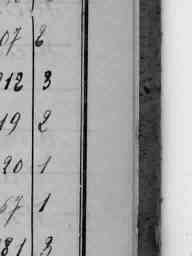 07 2
912 3
19 2
20 1
67 1
81 3